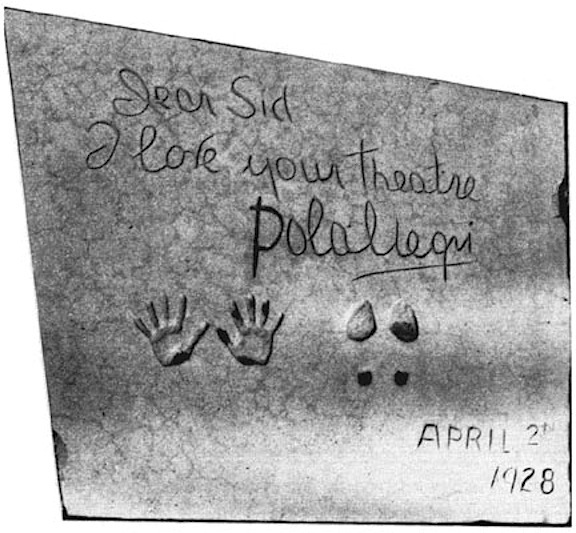 Dear Sid
I love your theatre
Pola Negri
APRIL 2ⁿ
1928